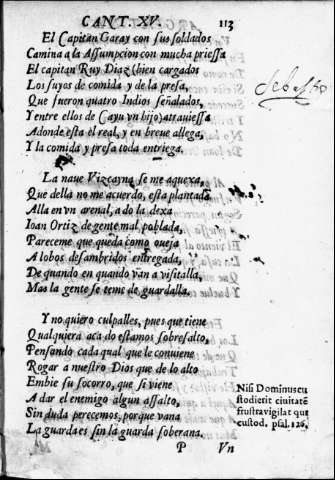 CANT. XV. 113
El Capitan Garay con sus soldados
Camina a la Assumpcion con mucha priessa
El capitan Ruy Diaz (bien cargados
Los suyos de comida y de la presa,
Que fueron quatro Indios señalados,
Y entre ellos de Cayu vn hijo) atrauiessa
Adonde esta el real, y en breue allega,
Y la comida y presa toda entriega.
La naue Vizcayna se me aquexa,
Que della no me acuerdo, esta plantada
Alla en vn arenal, a do la dexa
Ioan Ortiz de gente mal poblada,
Pareceme que queda como oueja
A lobos desambridos entregada,
De quando en quando van a visitalla,
Mas la gente se teme de guardalla.
Y no quiero culpalles, pues que tiene
Qualquiera aca do estamos sobresalto,
Pensando cada qual que le conuiene
Rogar a nuestro Dios que de lo alto
Embie su socorro, que si viene
A dar el enemigo algun assalto,
Sin duda perecemos, porque vana
La guarda es sin la guarda soberana.
Nisi Dominus cu
stodierit ciuitatē
frustra vigilat qui
custod. psal. 126.
P Vn